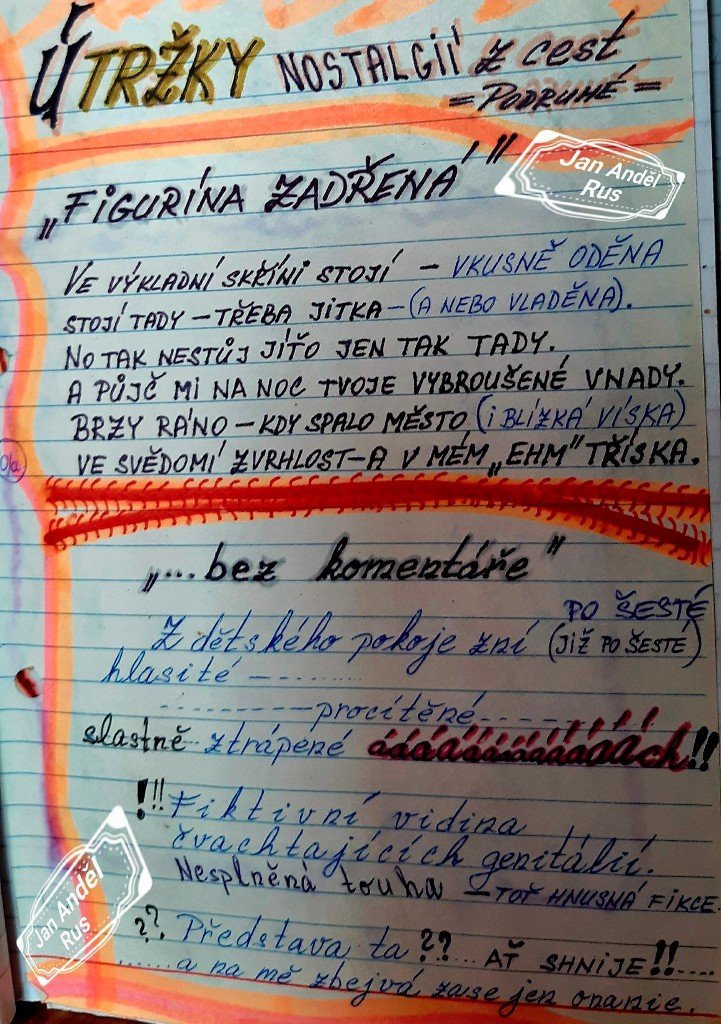 ÚTRŽKY NOSTALGIÍ z cest
= PODRUHÉ =
Jan Anděl
Rus
„FIGURÍNA ZADŘENÁ"
VE VÝKLADNÍ SKŘÍNI STOJÍ – VKUSNĚ ODĚNA
STOJÍ TADY – TŘEBA JITKA – (A NEBO VLADĚNA).
NO TAK NESTŮJ JÍŤO JEN TAK TADY.
A PŮJČ MI NA NOC TVOJE VYBROUŠENÉ VNADY.
BRZY RÁNO – KDY SPALO MĚSTO (i BLÍZKÁ VÍSKA)
VE SVĚDOMÍ ZVRHLOST – A V MÉM „EHM" TŘÍSKA.
„... bez komentáře"
PO ŠESTÉ
Z dětského pokoje zní (JIŽ PO ŠESTÉ)
hlasité – .........
......... procítěné ......
slastně ztrápené ááááááááááách!!
!!! Fiktivní vidina
čvachtajících genitálií.
Nesplněná touha – TOŤ HNUSNÁ FIKCE.
?? Představa ta ?? ... AŤ SHNIJE!!.....
...... a na mě zbejvá zase jen onanie.
Jan Anděl
Rus